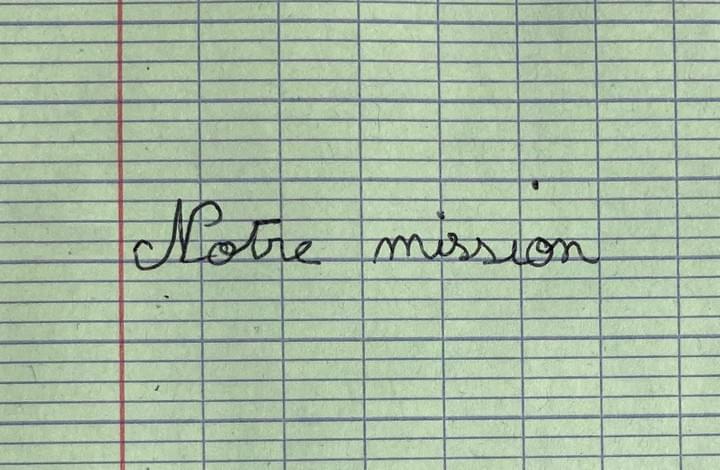 Notre mission